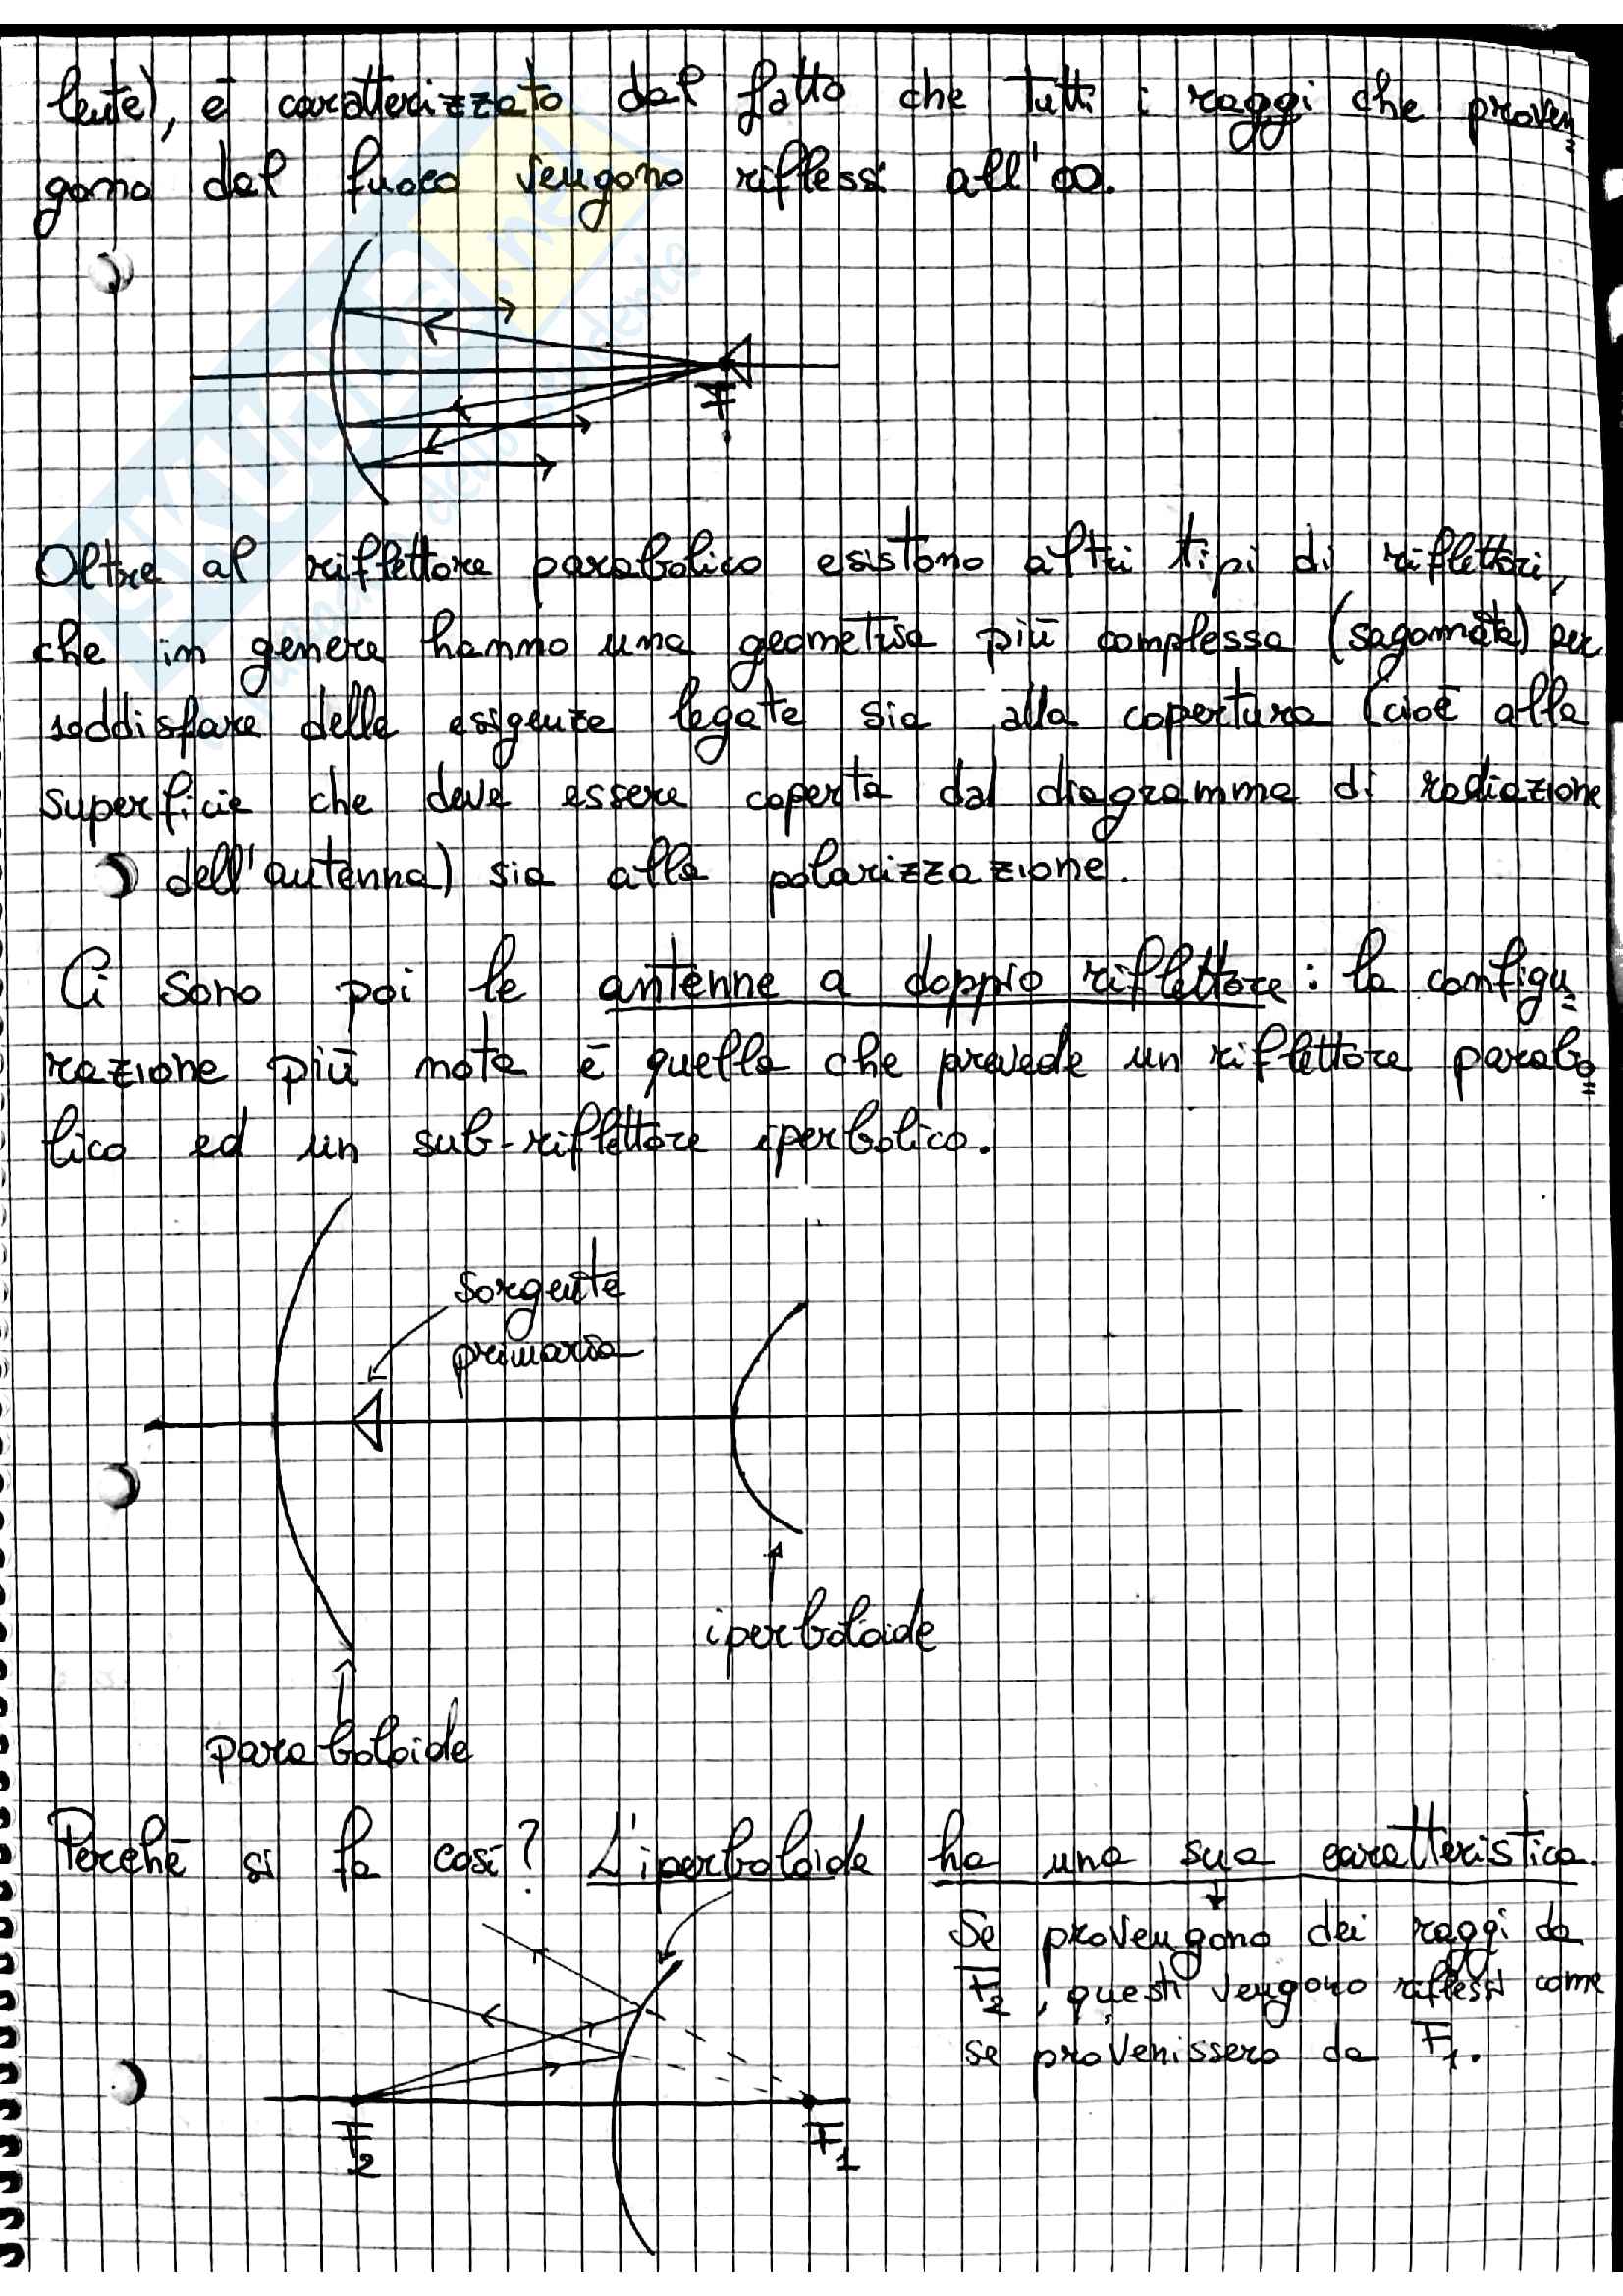 lente), è caratterizzato dal fatto che tutti i raggi che proven
gono dal fuoco vengono riflessi all'∞.
F
Oltre al riflettore parabolico esistono altri tipi di riflettori,
che in genere hanno una geometria più complessa (sagomata) per
soddisfare delle esigenze legate sia alla copertura (cioè alla
superficie che deve essere coperta dal diagramma di radiazione
dell'antenna) sia alla polarizzazione.
Ci sono poi le antenne a doppio riflettore: la configu
razione più nota è quella che prevede un riflettore parabo
lico ed un sub-riflettore iperbolico.
sorgente
primaria
iperboloide
paraboloide
Perchè si fa così? L'iperboloide ha una sua caratteristica.
Se provengono dei raggi da
F2, questi vengono riflessi come
se provenissero da F1.
F2
F1